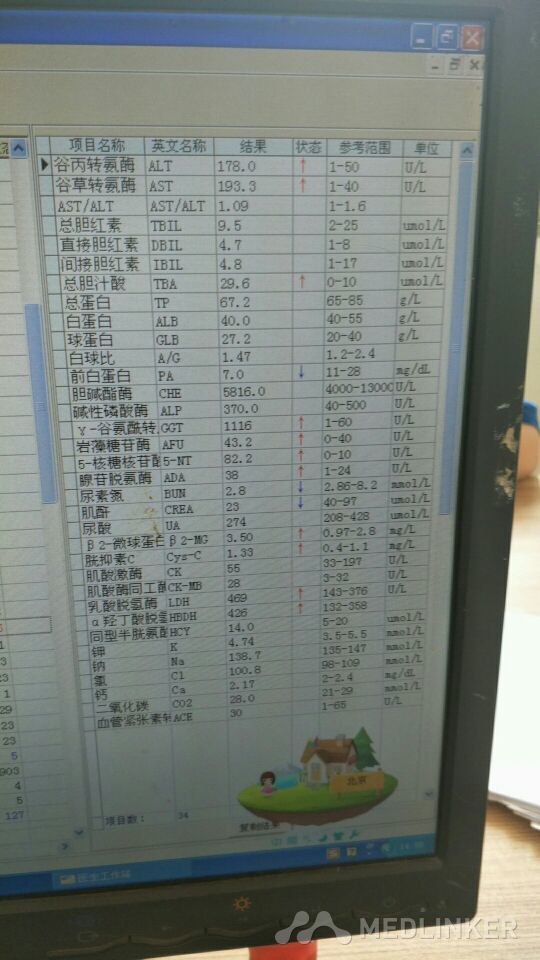 项目名称 英文名称 结果 状态 参考范围 单位
谷丙转氨酶 ALT 178.0 ↑ 1-50 U/L
谷草转氨酶 AST 193.3 ↑ 1-40 U/L
AST/ALT AST/ALT 1.09 1-1.6
总胆红素 TBIL 9.5 2-25 umol/L
直接胆红素 DBIL 4.7 1-8 umol/L
间接胆红素 IBIL 4.8 1-17 umol/L
总胆汁酸 TBA 29.6 ↑ 0-10 umol/L
总蛋白 TP 67.2 65-85 g/L
白蛋白 ALB 40.0 40-55 g/L
球蛋白 GLB 27.2 20-40 g/L
白球比 A/G 1.47 1.2-2.4
前白蛋白 PA 7.0 ↓ 11-28 mg/dL
胆碱酯酶 CHE 5816.0 4000-13000 U/L
碱性磷酸酶 ALP 370.0 40-500 U/L
γ-谷氨酰转 GGT 1116 ↑ 1-60 U/L
岩藻糖苷酶 AFU 43.2 ↑ 0-40 U/L
5-核糖核苷酸 5-NT 82.2 ↑ 0-10 U/L
腺苷脱氨酶 ADA 38 ↑ 1-24 U/L
尿素氮 BUN 2.8 ↓ 2.86-8.2 mmol/L
肌酐 CREA 23 ↓ 40-97 umol/L
尿酸 UA 274 208-428 umol/L
β2-微球蛋白 β2-MG 3.50 ↑ 0.97-2.8 mg/L
胱抑素C Cys-C 1.33 ↑ 0.4-1.1 mg/L
肌酸激酶 CK 55 33-197 U/L
肌酸酶同工酶 CK-MB 28 3-32 U/L
乳酸脱氢酶 LDH 469 ↑ 143-376 U/L
α羟丁酸脱氢 HBDH 426 ↑ 132-358
同型半胱氨酸 HCY 14.0 5-20 umol/L
钾 K 4.74 3.5-5.5 mmol/L
钠 Na 138.7 135-147 mmol/L
氯 Cl 100.8 98-109 mmol/L
钙 Ca 2.17 2-2.4 mg/dL
二氧化碳 CO2 28.0 21-29 mmol/L
血管紧张素转 ACE 30 1-65 U/L
北京
项目数： 34
复制结果
医生工作站
1
29
23
23
5
903
4
5
127
MEDLINKER